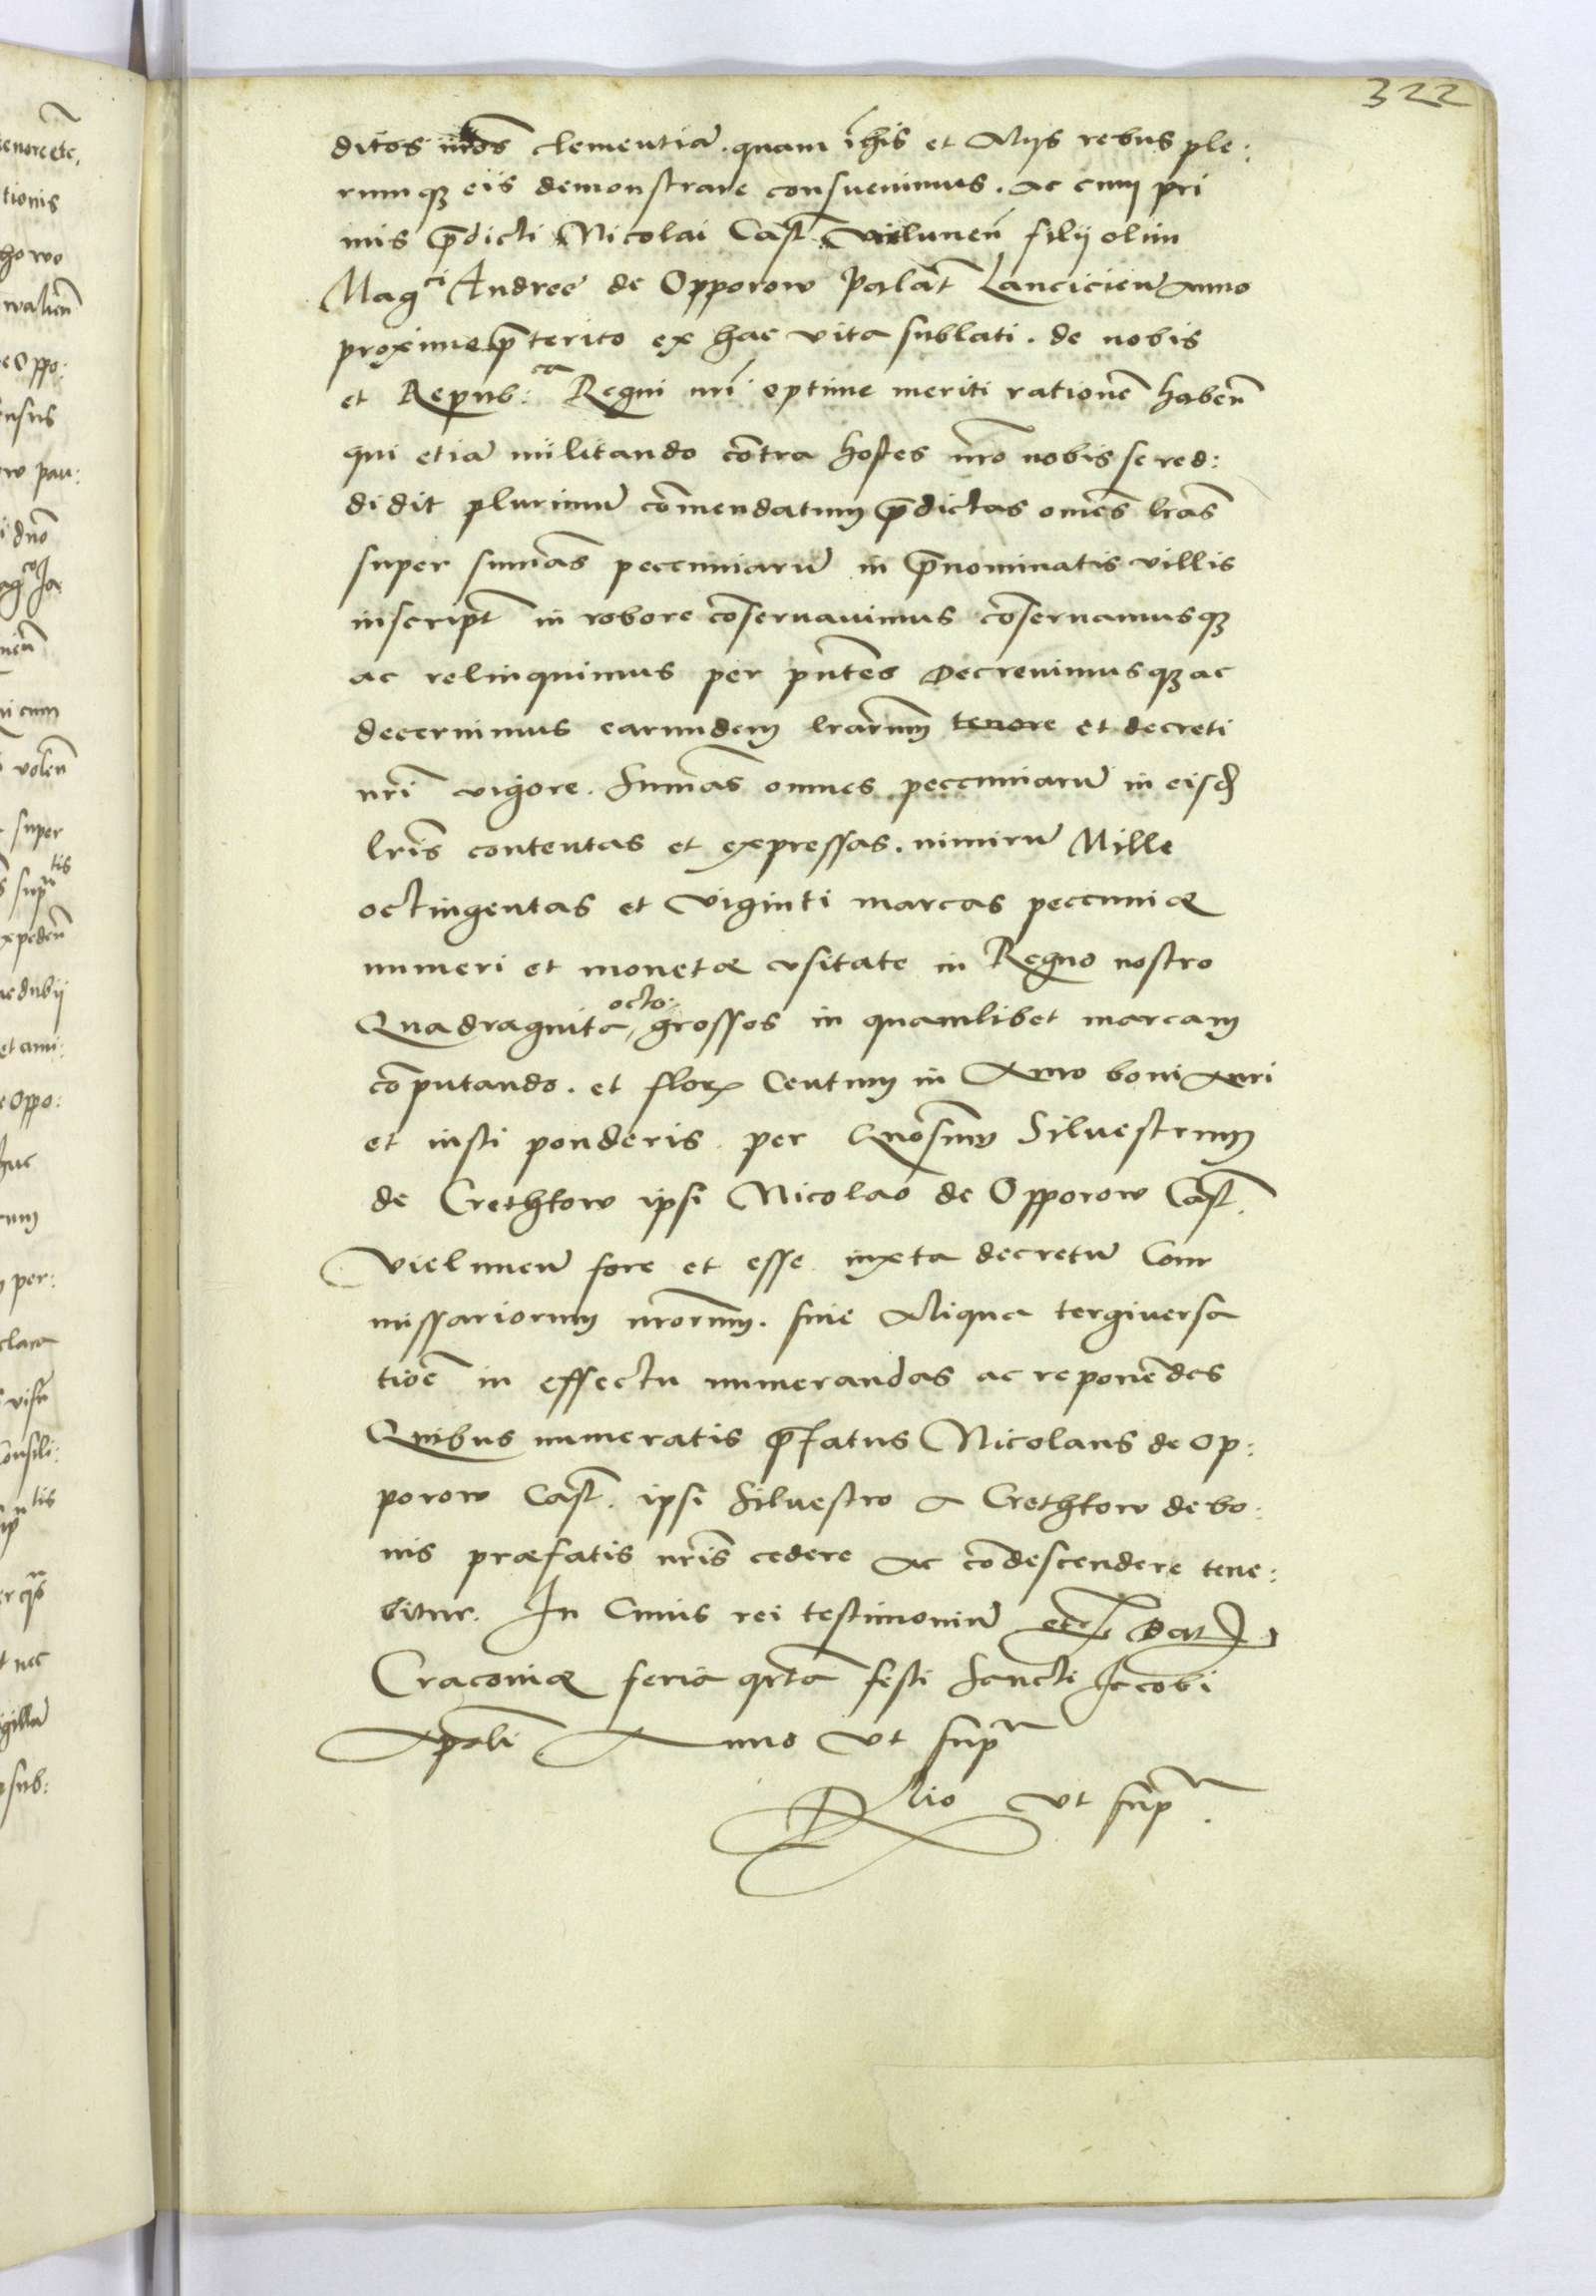 322
ditos nr̃os clementiã. quam ĩ his et Alijs rebus ple:
rumq3 eis demonstrare consuevimus. ac cum pri
mis p̃dicti Nicolai Cast̃. Vielunen̄ filij olim
Mag^ci Andree de Opporow Palat̃ Lancicien̄ anno
proxime p̃terito ex hac vita sublati. de nobis
et Repub:^ca Regni nr̃i optime meriti rationẽ haben̄
qui etiã militando cõtra hostes nr̃o nobis se red:
didit plurimũ cõmendatum p̃dictas omẽs lrãs
super sum̃as peccuniarũ in p̃nominatis villis
inscript̃ in robore cõservavimus cõservamusq3
ac relinquimus per pñtes Decrevimusq3 ac
decernimus earundem lrarum̃ tenore et decreti
nr̃i vigore. Sum̃as omnes peccuniarũ in eisd̃
lrĩs contentas et expressas. nimirũ Mille
octingentas et Viginti marcas peccuniæ
numeri et monetæ vsitate in Regno nostro
Quadraginta octo: grossos in quamlibet marcam
cõputando. et flor̃ Centum in Auro boni auri
et iusti ponderis per Gñosum̃ Silvestrum
de Crethkow ipsi Nicolao de Opporow Cast̃.
Vielunen̄ fore et esse iuxta decretũ Com
missariorum nr̃orum. sine Aliqua tergiversa
tiõe in effectu numerandas ac reponẽdas
Quibus numeratis p̃fatus Nicolaus de Op:
porow Cast̃. ipsi Silvestro a Crethkow de bo:
nis præfatis nr̃is cedere ac cõdescendere tene:
bitur. In Cuius rei testimoniũ etc̃ Dat̃
Cracoviæ feria qr̃ta festi Sancti Jacobi
Apl̃i Anno Vt sup^a
Rl̃io vt sup^a.